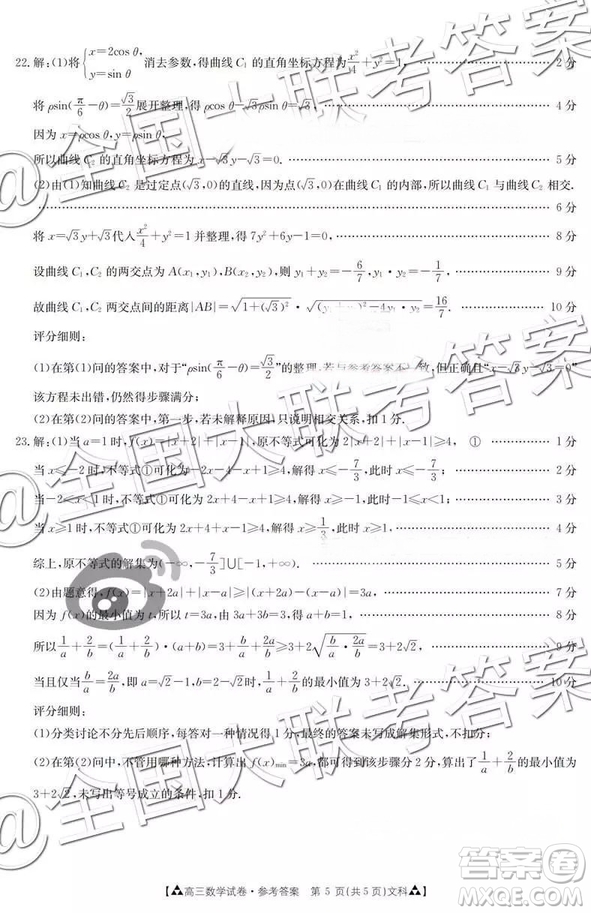 22.解:(1)将{x=2cos θ, y=sin θ 消去参数,得曲线 C₁ 的直角坐标方程为x²/4+y²=1, 2 分
将 ρsin(π/6-θ)=√3/2展开整理,得 ρcos θ-√3ρsin θ=√3, 4 分
因为 x=ρcos θ,y=ρsin θ,
所以曲线 C₂ 的直角坐标方程为 x-√3y-√3=0. 5 分
(2)由(1)知曲线 C₂ 是过定点(√3,0)的直线,因为点(√3,0)在曲线 C₁ 的内部,所以曲线 C₁ 与曲线 C₂ 相交.
6 分
将 x=√3y+√3代入x²/4+y²=1并整理,得 7y²+6y-1=0, 8 分
设曲线 C₁,C₂ 的两交点为 A(x₁,y₁),B(x₂,y₂),则 y₁+y₂=-6/7, 9 分
故曲线 C₁,C₂ 两交点间的距离|AB|=√(1+(√3)²)·√((y₁+y₂)²-4y₁·y₂)=16/7. 10 分
评分细则:
(1)在第(1)问的答案中,对于“ρsin(π/6-θ)=√3/2”的整理,若与参考答案不一致,但正确得到“x-√3y-√3=0”
该方程未出错,仍然得步骤满分;
(2)在第(2)问的答案中,第一步,若未解释原因,只说明相交关系,扣 1 分.
23.解:(1)当 a=1 时,f(x)=|x+2|+|x-1|,原不等式可化为 2|x+2|+|x-1|≥4, ① 1 分
当 x≤-2 时,不等式①可化为-2x-4-x+1≥4,解得 x≤-7/3,此时 x≤-7/3; 2 分
当-2<x<1 时,不等式①可化为 2x+4-x+1≥4,解得 x≥-1,此时-1≤x<1; 3 分
当 x≥1 时,不等式①可化为 2x+4+x-1≥4,解得 x≥1/3,此时 x≥1, 4 分
综上,原不等式的解集为(-∞,-7/3]∪[-1,+∞). 5 分
(2)由题意得,f(x)=|x+2a|+|x-a|≥|(x+2a)-(x-a)|=3a, 7 分
因为 f(x)的最小值为 t,所以 t=3a,由 3a+3b=3,得 a+b=1, 8 分
所以1/a+2/b=(1/a+2/b)·(a+b)=3+b/a+2a/b≥3+2√(b/a·2a/b)=3+2√2, 9 分
当且仅当b/a=2a/b,即 a=√2-1,b=2-√2时,1/a+2/b的最小值为 3+2√2. 10 分
评分细则:
(1)分类讨论不分先后顺序,每答对一种情况得 1 分,最终的答案未写成解集形式,扣 1 分;
(2)在第(2)问中,不管用哪种方法,计算出 f(x)min=3a,都可得到该步骤分 2 分,算出了1/a+2/b的最小值为
3+2√2,未写出等号成立的条件,扣 1 分.
高三数学试卷·参考答案 第 5 页(共 5 页)文科
@全国大联考答案
答案圈
MXQE.COM